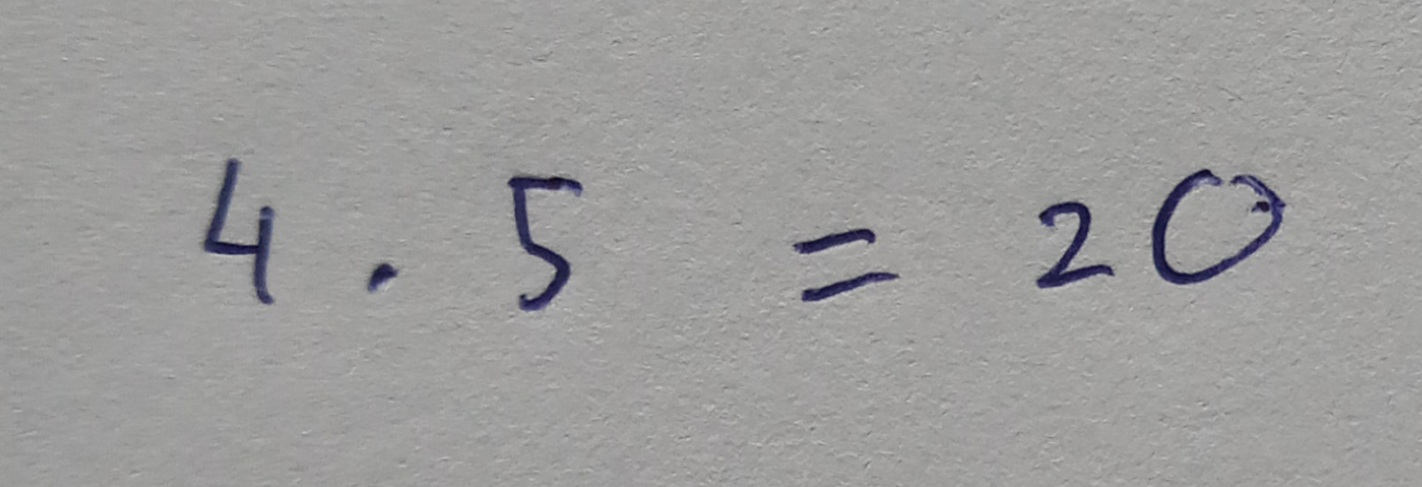 4 . 5 = 20